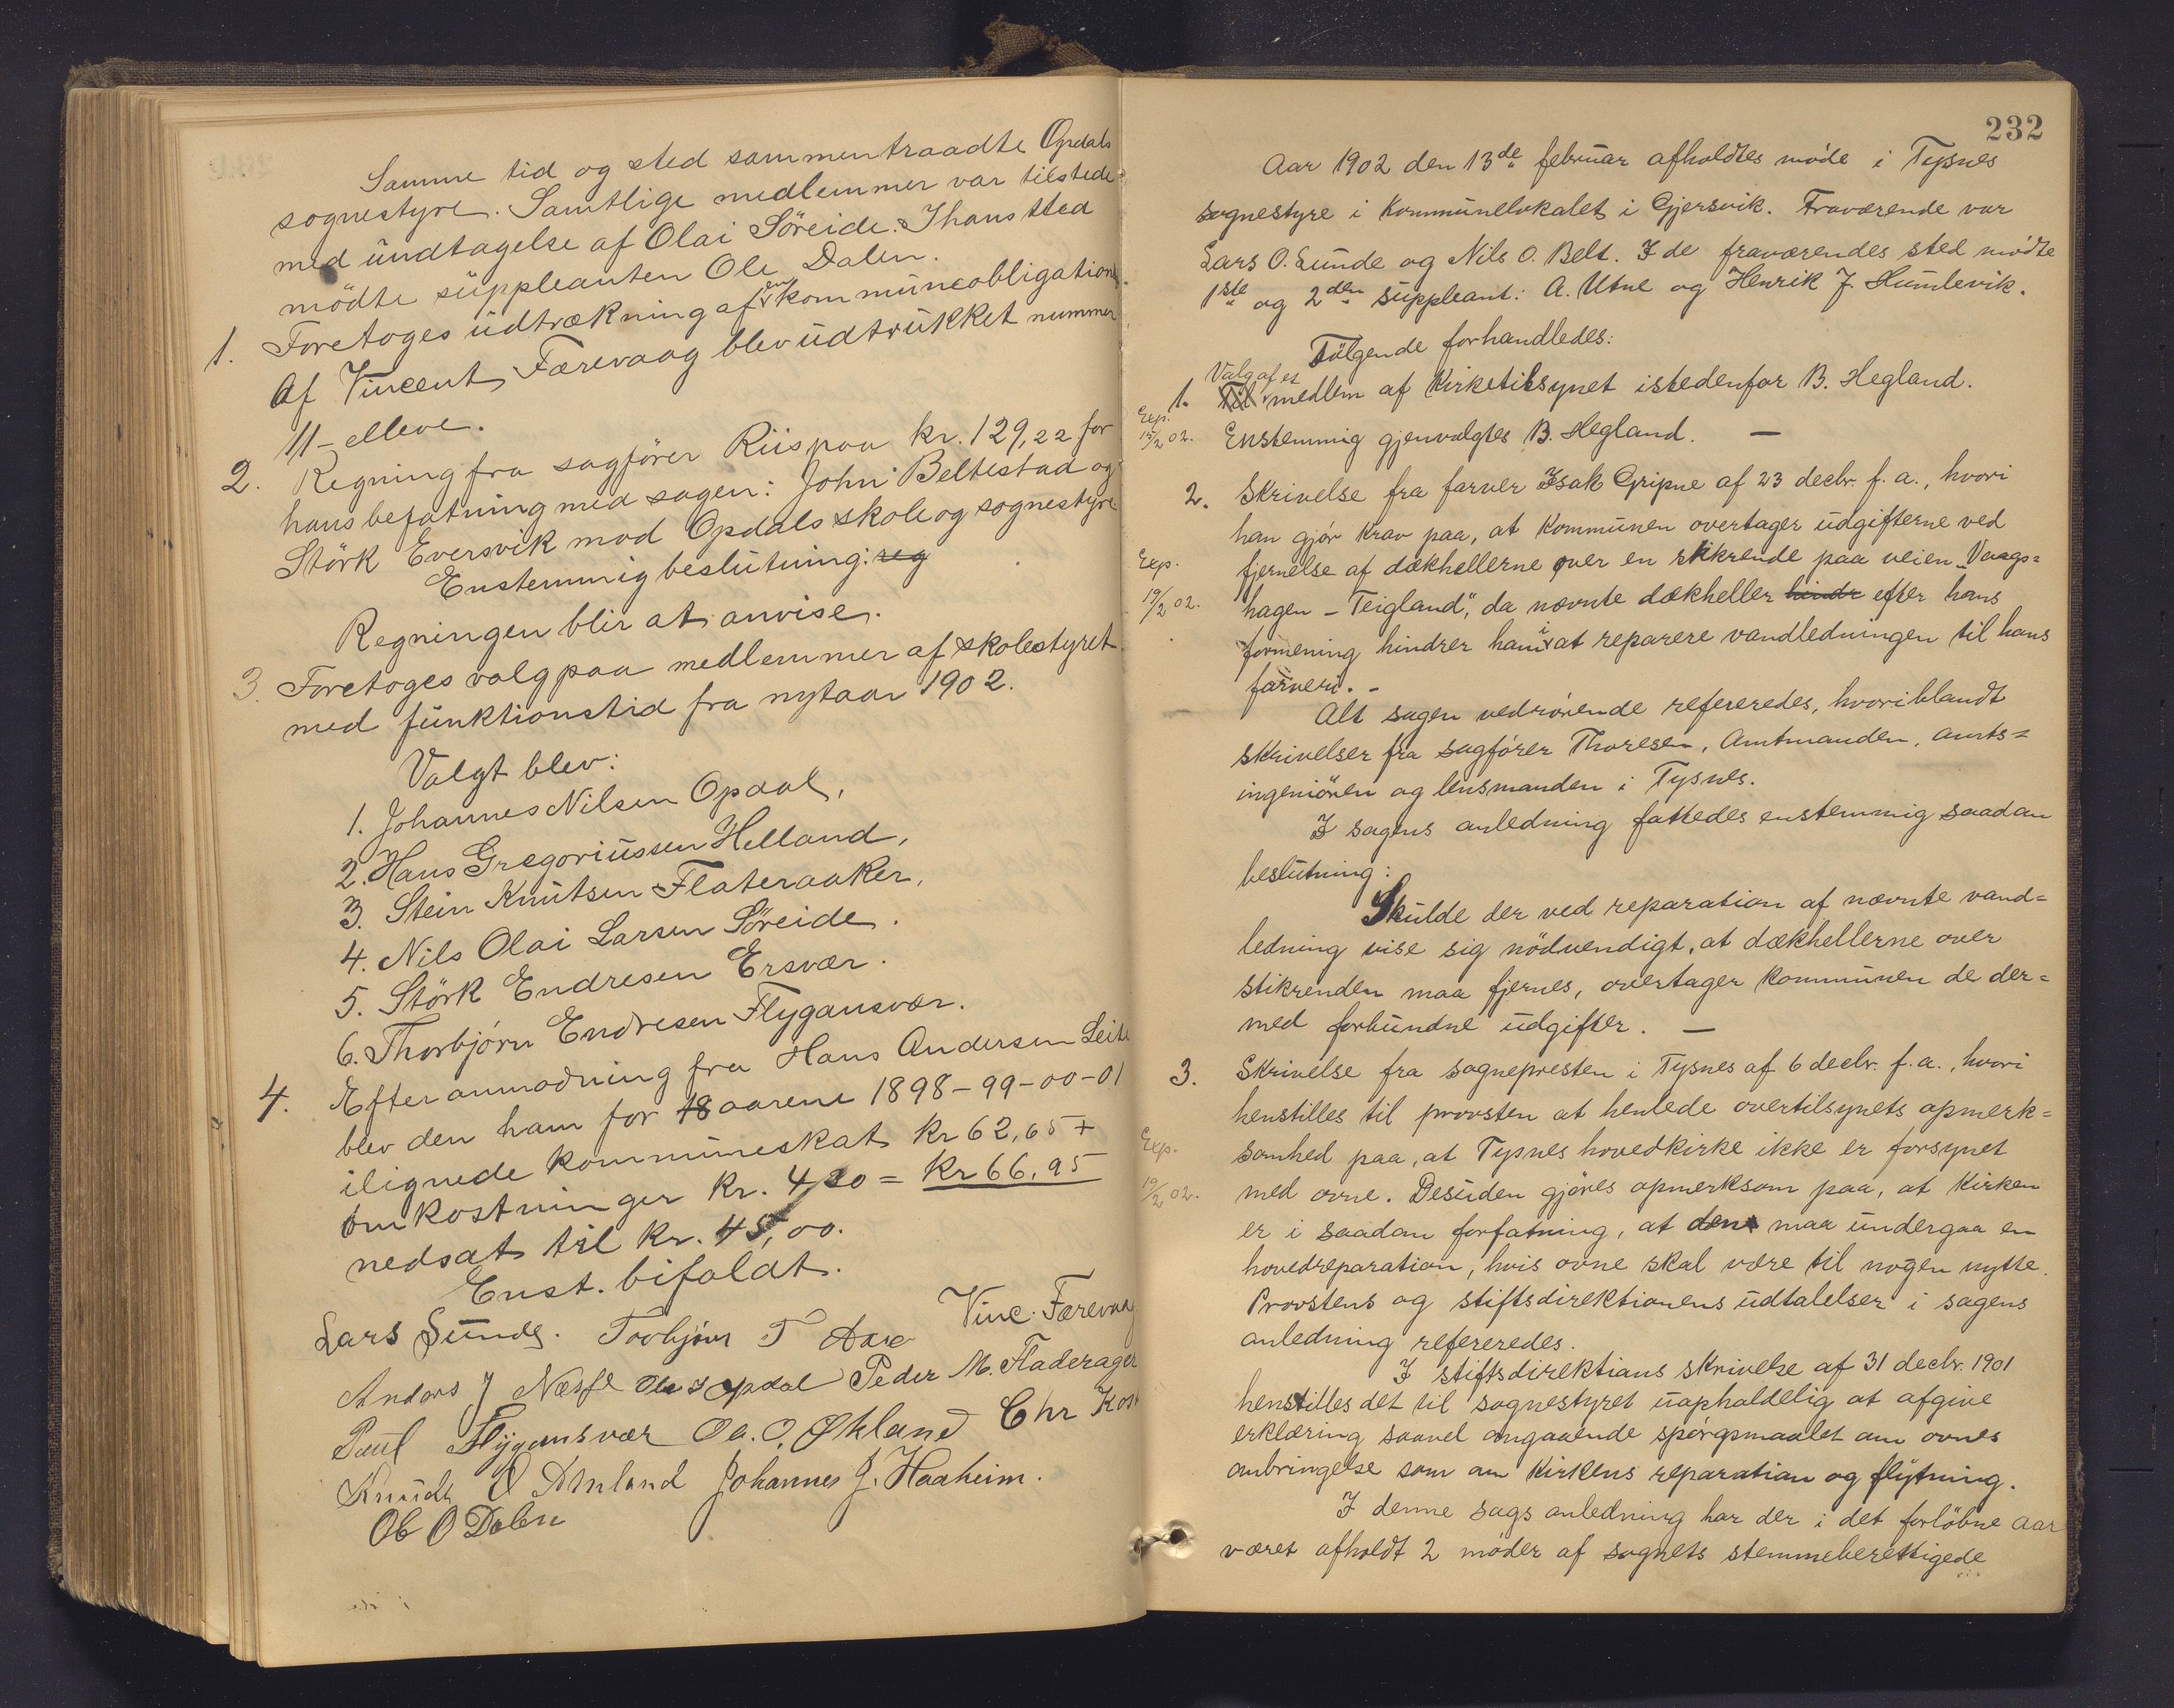 Samme tid og sted sammentraadte Opdals
sognestyre. Samtlige medlemmer var tilstede
med undtagelse af Olai Söreide. I hans sted
mödte suppleanten Ole Dalen.
1. Foretoges udtrækning af en kommuneobligation.
Af Vincent Færevaag blev udtrukket nummer
11 - elleve.
2. Regning fra sagfører Riis paa kr. 129,22 for
hans befatning med sagen: John Beltestad og
Störk Eversvik mod Opdals skole og sognestyre
Enstemmig beslutning: reg
Regningen blir at anvise.
3. Foretoges valg paa medlemmer af skolestyret
med funktionstid fra nytaar 1902.
Valgt blev:
1. Johannes Nilsen Opdal,
2. Hans Gregoriussen Helland,
3. Stein Knutsen Flateraaker,
4. Nils Olai Larsen Söreide.
5. Störk Endresen Ersvær.
6. Thorbjørn Endresen Flygansvær.
4. Efter anmodning fra Hans Andersen Leite
blev den ham for 18 aarene 1898-99-00-01
ilignede kommuneskat kr 62,65 +
omkostninger kr. 4,30 = kr 66,95
nedsat til kr. 45,00.
Enst. bifaldt.
Lars Sunde. Torbjørn T Vinc. Færevaag
Anders J Næsse Ole Opdal Peder M. Fladerager
Paul Flygansvær Ola. O. Økland Chr
Knudt O Johannes J. Haaheim.
Ole O Dalen
232
Aar 1902 den 13de februar afholdtes møde i Tysnes
sognestyre i kommunelokalet i Gjersvik. Fraværende var
Lars O. Sunde og Nils O. Belt. I de fraværendes sted mødte
1ste og 2den suppleant: A. Utne og Henrik J. Humlevik.
Følgende forhandledes:
1. Til Valg af et medlem af kirketilsynet istedenfor B. Hegland.
Exp. 15/2 02. Enstemmig gjenvalgtes B. Hegland. —
2. Skrivelse fra farver Isak Gripne af 23 decbr. f. a., hvori
han gjør krav paa, at kommunen overtager udgifterne ved
Exp. fjernelse af dækhellerne over en stikrende paa veien „Vaags=
19/2 02. hagen - Teigland", da nævnte dækheller hindr efter hans
formening hindrer ham i at reparere vandledningen til hans
farveri. -
Alt sagen vedrørende refereredes, hvoriblandt
skrivelser fra sagfører Thoresen, Amtmanden, amts=
ingeniören og lensmanden i Tysnes.
I sagens anledning fattedes enstemmig saadan
beslutning:
Skulde der ved reparation af nævnte vand=
ledning vise sig nödvendigt, at dækhellerne over
stikrenden maa fjernes, overtager kommunen de der=
med forbundne udgifter. —
3. Skrivelse fra sognepresten i Tysnes af 6 decbr. f. a., hvori
henstilles til provsten at henlede overtilsynets opmerk=
Exp. somhed paa, at Tysnes hovedkirke ikke er forsynet
19/2 02. med ovne. Desuden gjøres opmerksom paa, at kirken
er i saadan forfatning, at den maa undergaa en
hovedreparation, hvis ovne skal være til nogen nytte.
Provstens og stiftsdirektionens udtalelser i sagens
anledning refereredes.
I stiftsdirektions skrivelse af 31 decbr. 1901
henstilles det til sognestyret uopholdelig at afgive
erklæring saavel angaaende spørgsmaalet om ovnes
anbringelse som om kirkens reparation og flytning.
I denne sags anledning har der i det forløbne aar
været afholdt 2 møder af sognets stemmeberettigede